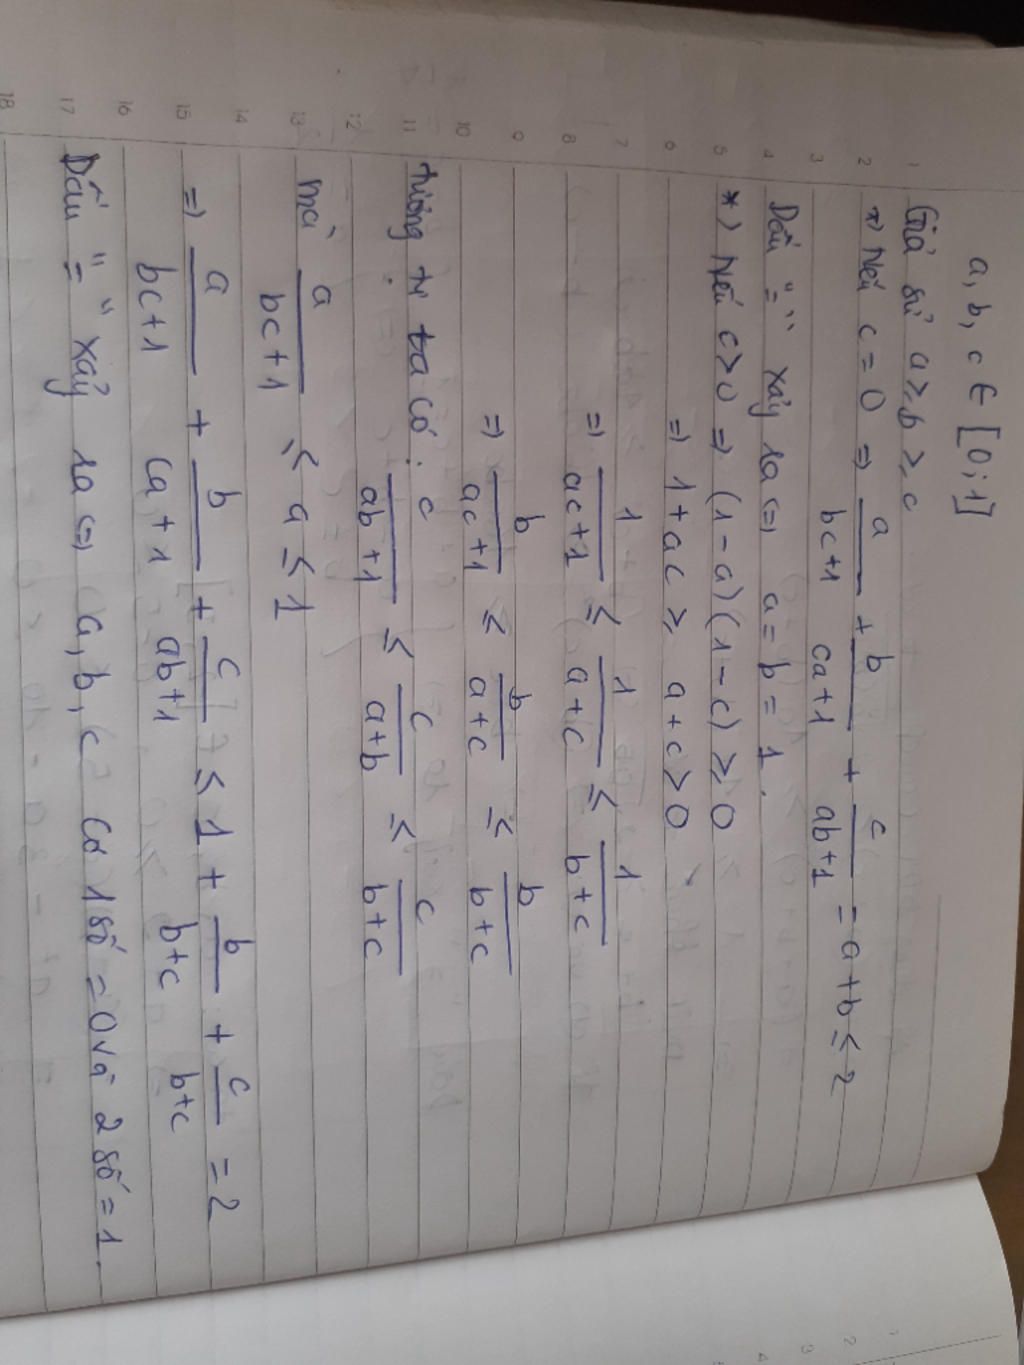 a, b, c ∈ [0;1]
Giả sử a ≥ b ≥ c
*) Nếu c = 0 => a/(bc+1) + b/(ca+1) + c/(ab+1) = a+b ≤ 2
Dấu "=" xảy ra <=> a = b = 1.
*) Nếu c>0 => (1-a)(1-c) ≥ 0
=> 1+ac ≥ a+c > 0
=> 1/(ac+1) ≤ 1/(a+c) ≤ 1/(b+c)
=> b/(ac+1) ≤ b/(a+c) ≤ b/(b+c)
tương tự ta có: c/(ab+1) ≤ c/(a+b) ≤ c/(b+c)
mà a/(bc+1) ≤ a ≤ 1
=> a/(bc+1) + b/(ca+1) + c/(ab+1) ≤ 1 + b/(b+c) + c/(b+c) = 2
Dấu "=" xảy ra <=> a, b, c có 1 số = 0 và 2 số = 1.
1
2
3
4
5
6
7
8
9
10
11
12
13
14
15
16
17
18
1
2
3
4